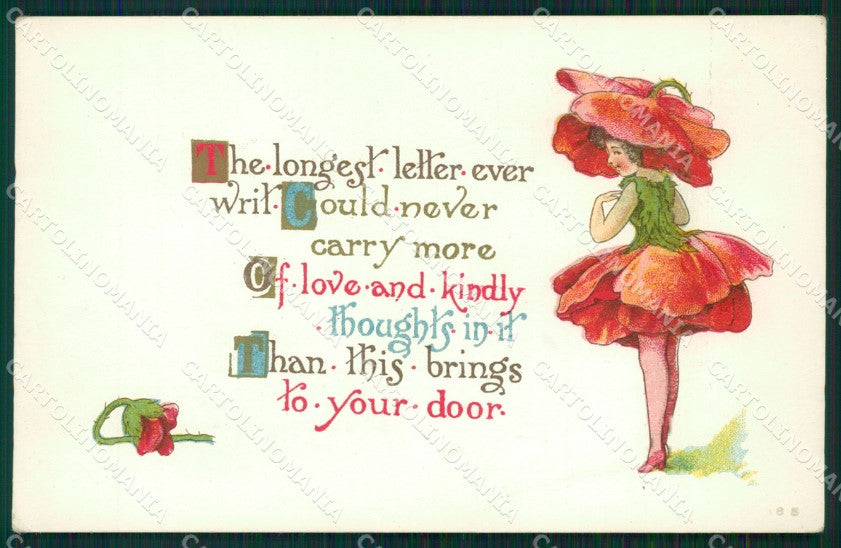 The·longest·letter·ever
writ·Could·never
carry more
Of·love·and·kindly
·thoughts·in·it
Than·this·brings
to·your·door.
CARTOLINOMANIA